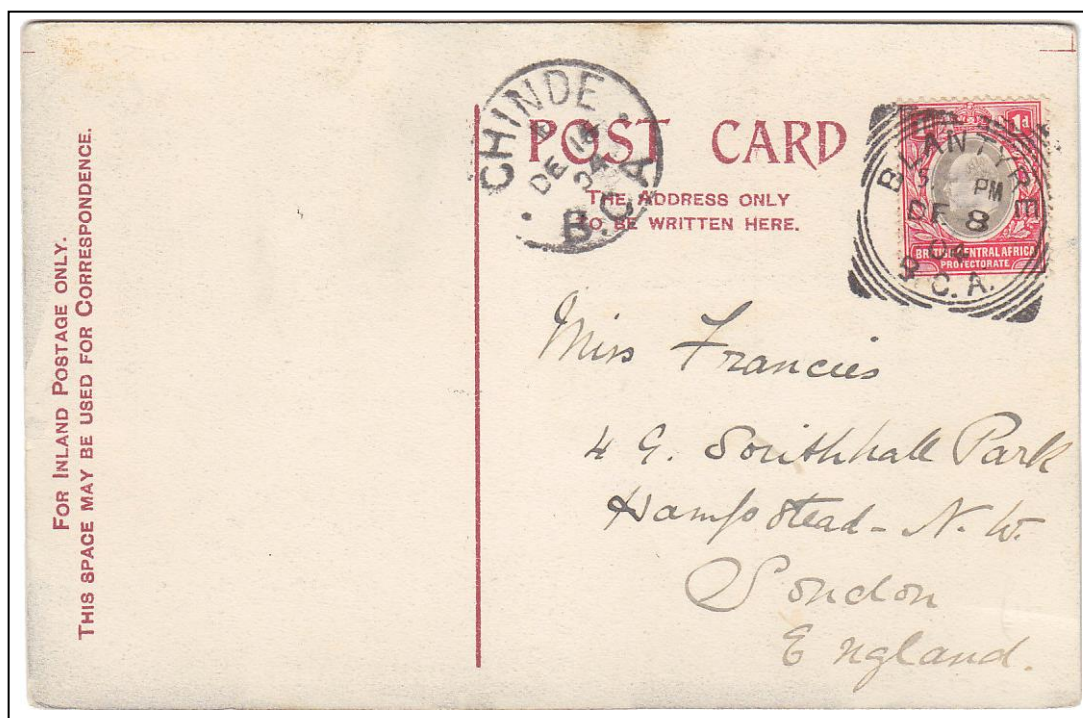 FOR INLAND POSTAGE ONLY.
THIS SPACE MAY BE USED FOR CORRESPONDENCE.
CHINDE
DE 16
04
B.C.A
POST CARD
THE ADDRESS ONLY
TO BE WRITTEN HERE.
1d
BLANTYRE
PM
DE 8
04
B.C.A.
BRITISH CENTRAL AFRICA
PROTECTORATE
Miss Francies
4 G. Southhall Park
Hampstead - N.W.
London
England.